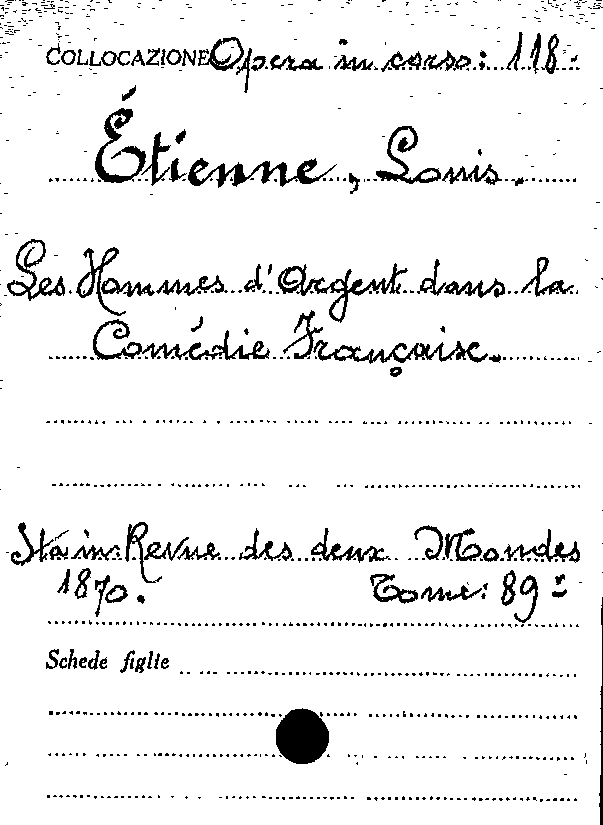 COLLOCAZIONE Opera in corso: 118.
Étienne, Louis.
Les Hommes d'Argent dans la
Comédie Française.
Sta in: Revue des deux Mondes
1870. Tome: 89º
Schede figlie